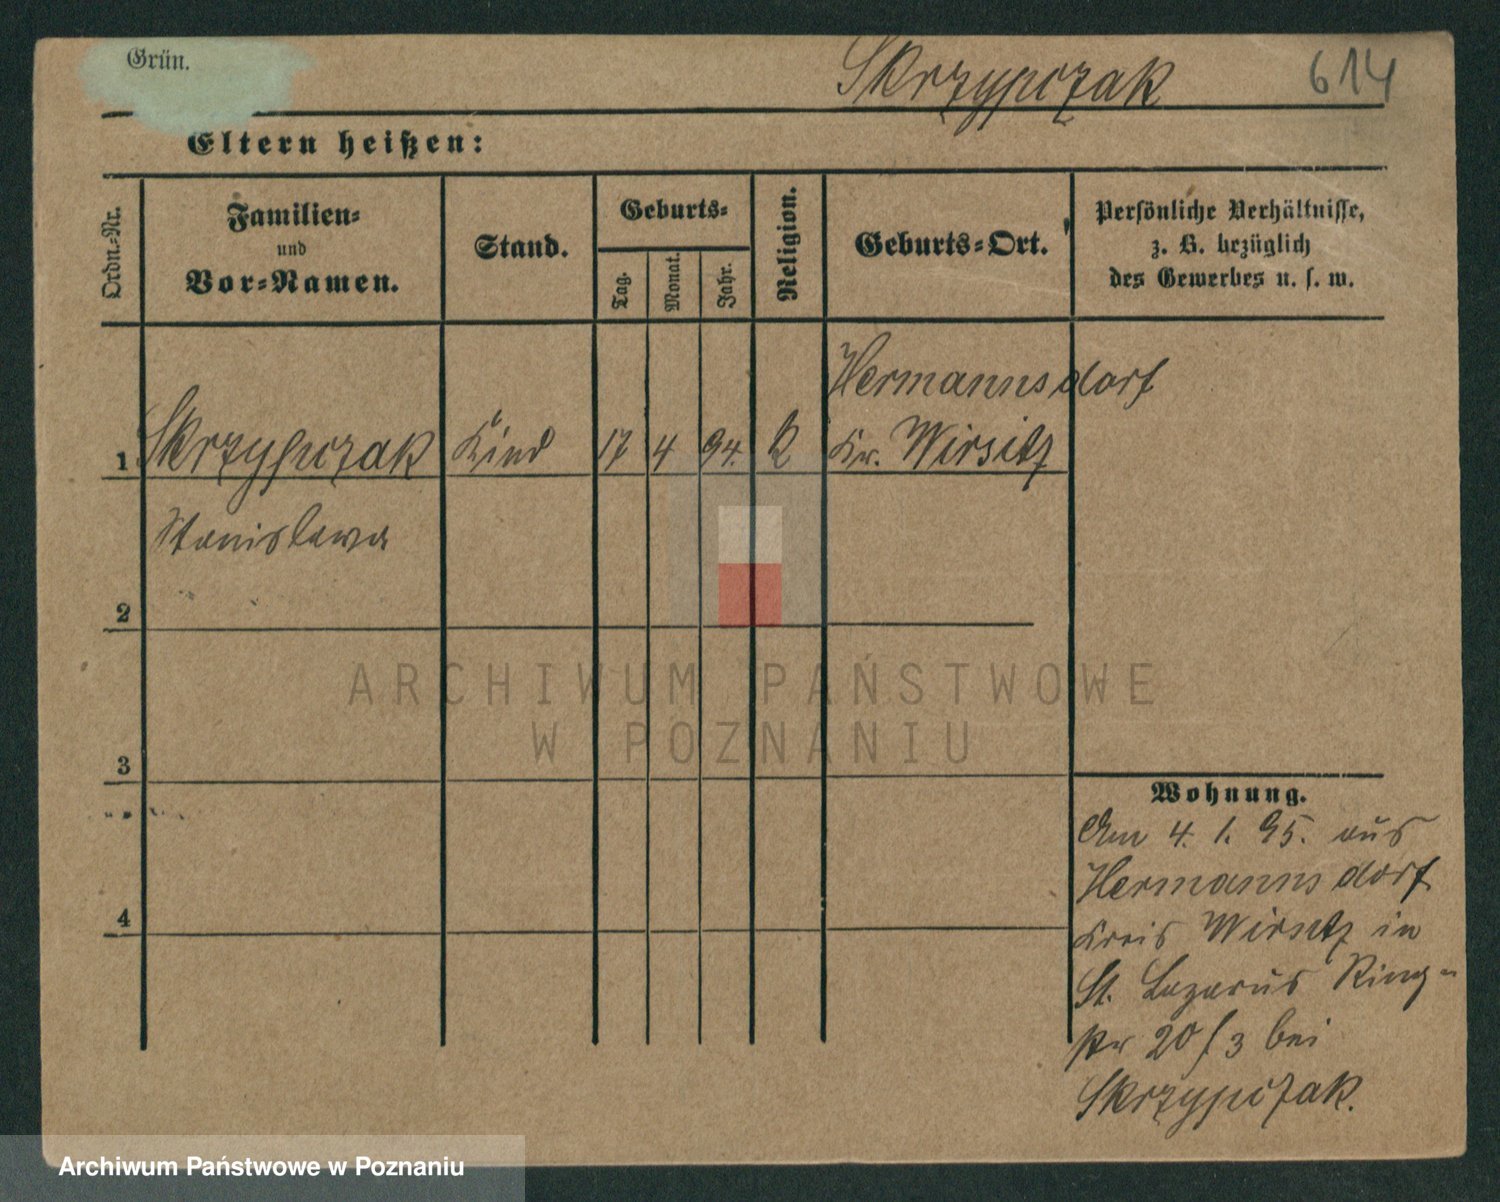 Grün.
Skrzypczak
614
Eltern heißen:
Ordn.-Nr.
Familien-
und
Vor-Namen.
Stand.
Geburts-
Tag.
Monat.
Jahr.
Religion.
Geburts-Ort.
Persönliche Verhältnisse,
z. B. bezüglich
des Gewerbes u. s. w.
Hermannsdorf
1 Skrzypczak Kind 17 4 94. K Kr. Wirsitz
Stanislawa
2
3
4
Wohnung.
Am 4. 1. 95. aus
Hermannsdorf
Kreis Wirsitz in
St. Lazarus Ring-
str 20/3 bei
Skrzypczak.
ARCHIWUM PAŃSTWOWE
W POZNANIU
Archiwum Państwowe w Poznaniu